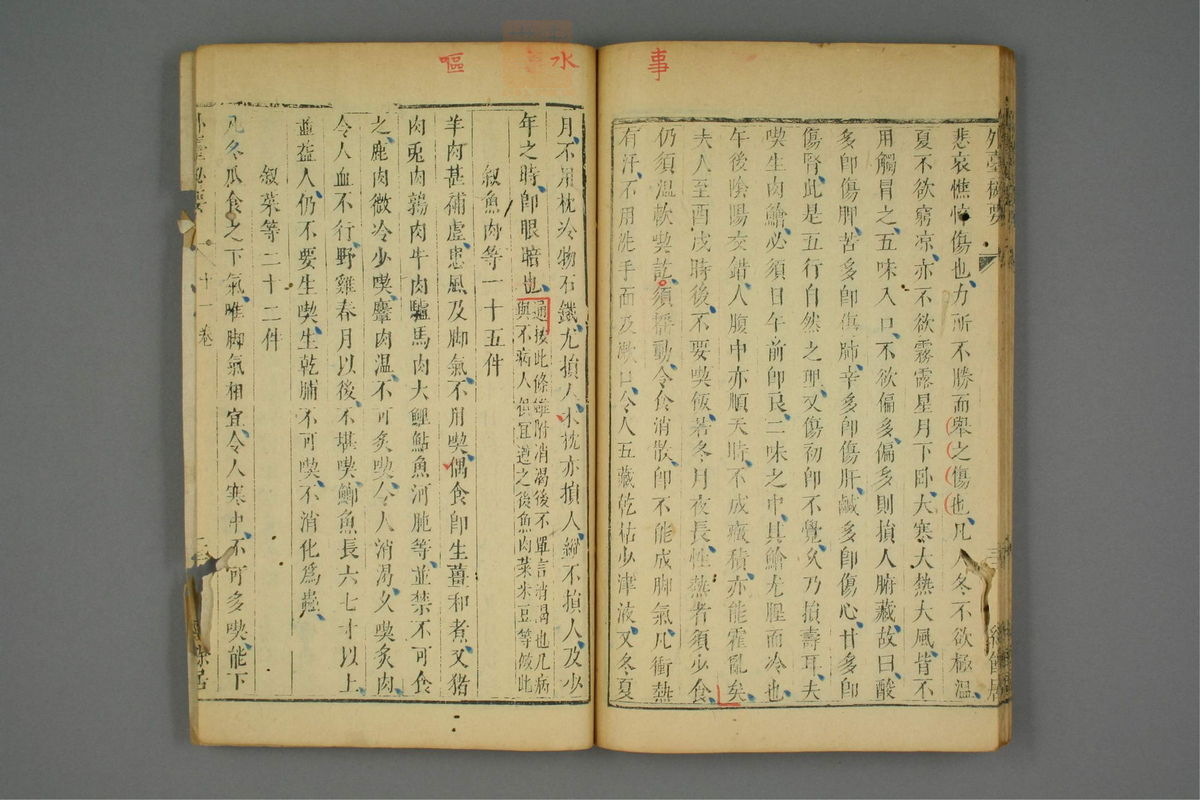 事
外臺秘要
悲哀憔悴傷也力所不勝而舉之傷也凡人冬不欲極溫
夏不欲窮凉亦不欲霧露星月下臥大寒大熱大風皆不
用觸冒之五味入口不欲偏多偏多則損人腑藏故曰酸
多卽傷脾苦多卽傷肺辛多卽傷肝鹹多卽傷心甘多卽
傷腎此是五行自然之理又傷初卽不覺久乃損壽耳夫
喫生肉鱠必須日午前卽良二味之中其鱠尤腥而冷也
午後陰陽交錯人腹中亦順天時不成癥積亦能霍亂矣
夫人至酉戌時後不要喫飯若冬月夜長性熱者須少食
仍須溫軟喫訖須搖動令食消散卽不能成脚氣凡衝熱
有汗不用洗手面及漱口令人五藏乾枯少津液又冬夏
水
嘔
月不用枕冷物石鐵尤損人木枕亦損人縱不損人及少
年之時卽眼暗也通按此條雖附消渴後不單言消渴也凡病
與不病人俱宜遵之後魚肉菜米豆等倣此
敘魚肉等一十五件
羊肉甚補虛患風及脚氣不用喫偶食卽生薑和煮又猪
肉兎肉鶉肉牛肉驢馬肉大鯉鮎魚河㹠等並禁不可食
之鹿肉微冷少喫麞肉溫不可炙喫令人消渴久喫炙肉
令人血不行野雞春月以後不堪喫鯽魚長六七寸以上
並益人仍不要生喫生乾脯不可喫不消化爲蟲
敘菜等二十二件
凡冬瓜食之下氣唯脚氣相宜令人寒中不可多喫能下
十一卷